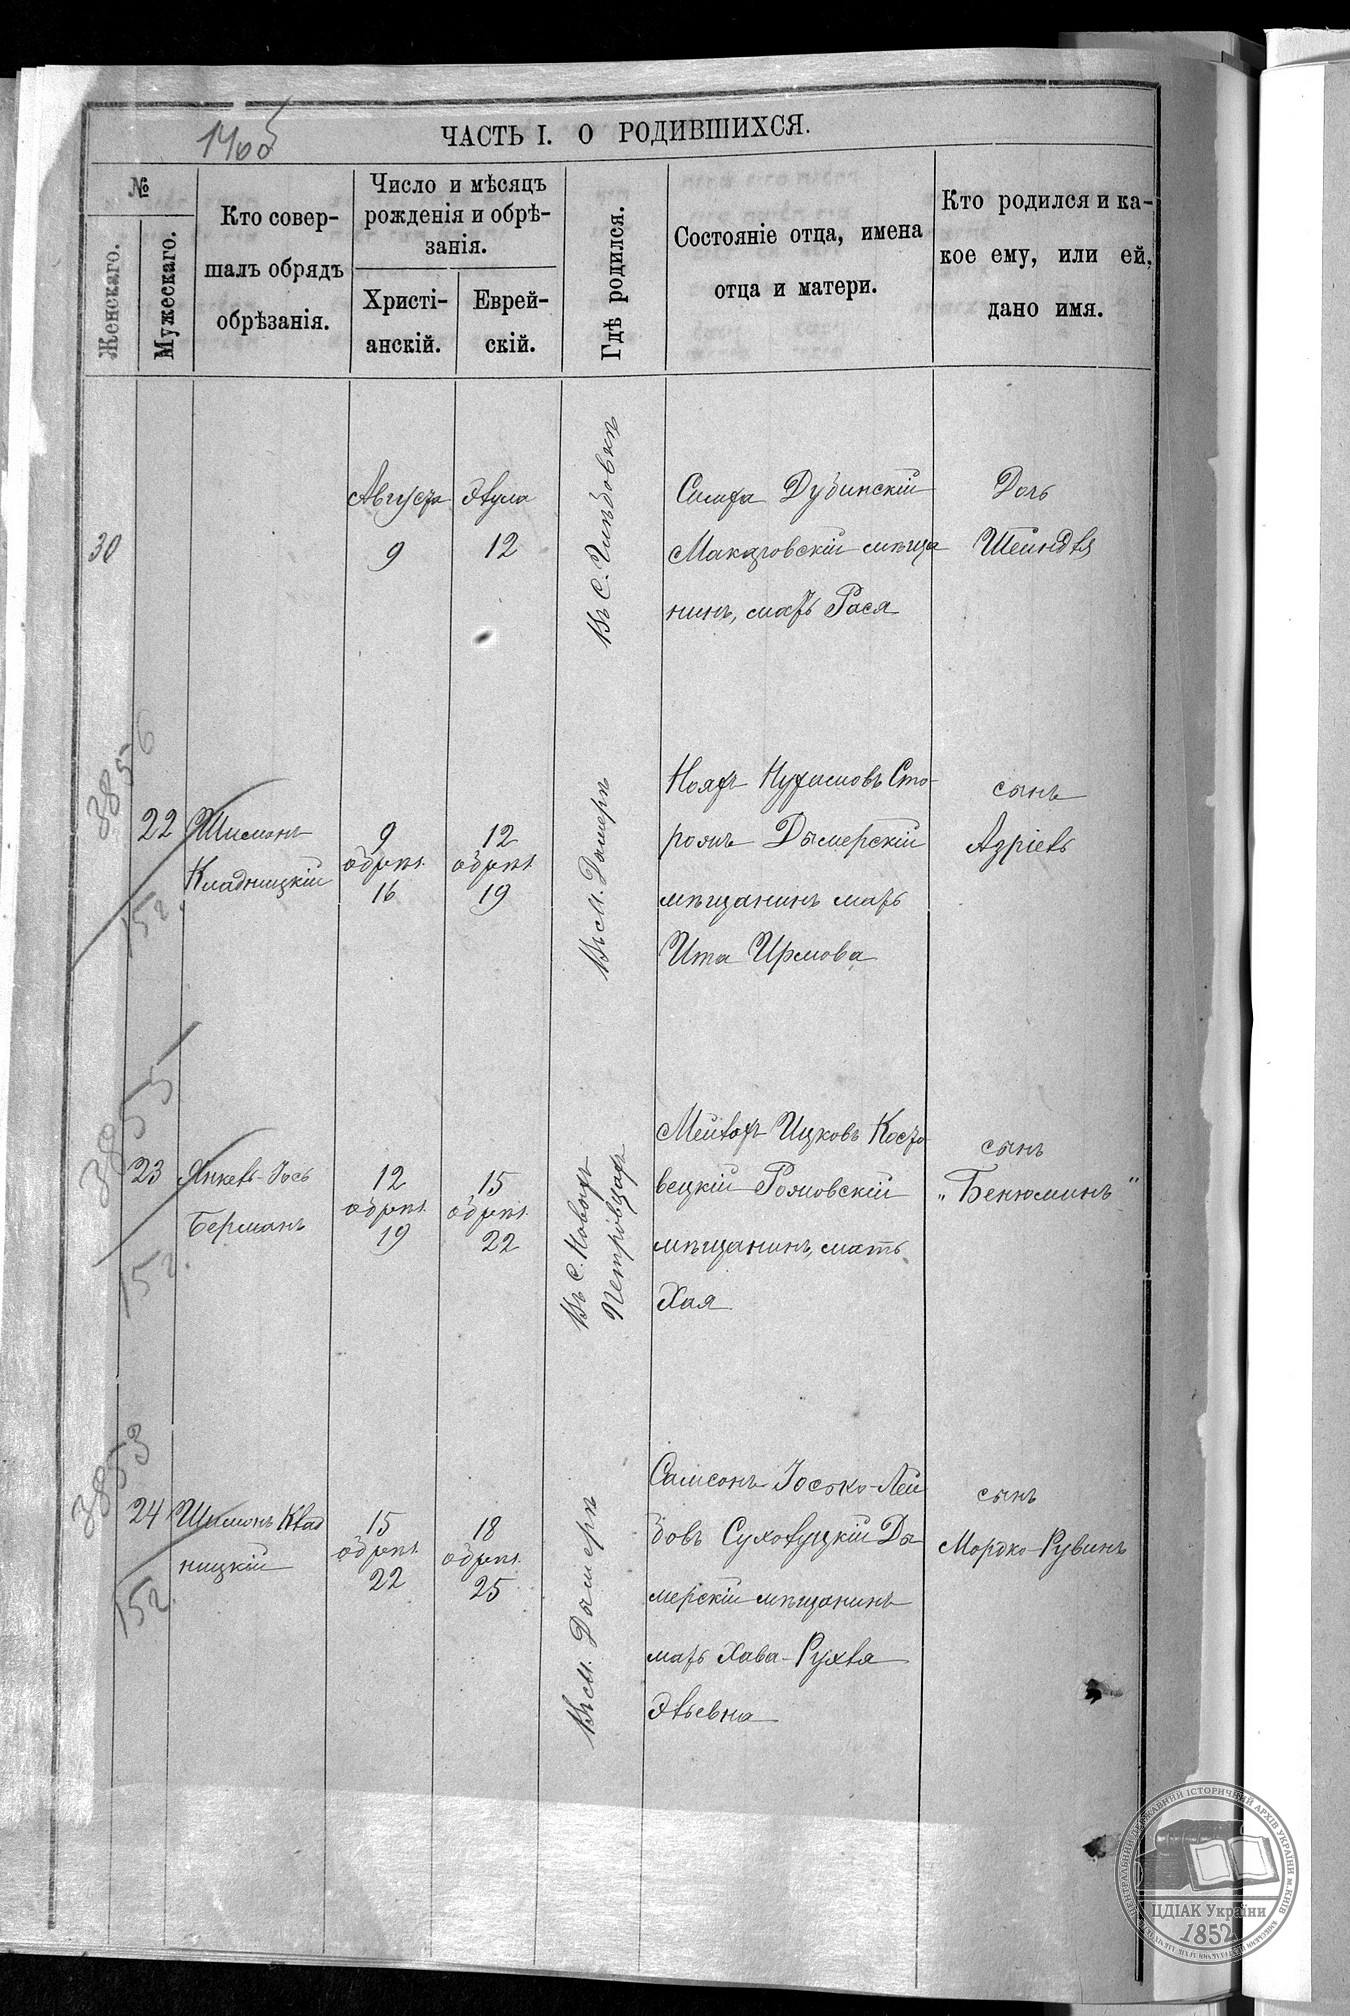 ЧАСТЬ I. О РОДИВШИХСЯ.
№
Женскаго.
Мужескаго.
Кто совер-
шалъ обрядъ
обрѣзанія.
Число и мѣсяцъ
рожденія и обрѣ-
занія.
Христі-
анскій.
Еврей-
скій.
Гдѣ родился.
Состояніе отца, имена
отца и матери.
Кто родился и ка-
кое ему, или ей,
дано имя.
30
Августа
9
Элула
12
Въ с.
Симха Дубинскій
Макаровскій мѣща
нинъ, мать Рася
Дочь
Шейндля
3855
6
152
22
Шимонъ
Кладницкій
9
обрѣз.
16
12
обрѣз.
19
Въ м. Дымерѣ
Ноахъ Нухимовъ Сто-
ромъ Дымерскій
мѣщанинъ мать
Ита Ирмова
сынъ
Азріель
3855
152
23
Янкель-Іось
Берманъ
12
обрѣз.
19
15
обрѣз.
22
Въ с. Новыхъ
Петровцахъ
Мейлахъ Ицковъ Косто
вецкій
мѣщанинъ, мать
Хая
сынъ
„Бенюминъ"
3853
152
24
Шимонъ Клад
ницкій
15
обрѣз.
22
18
обрѣз.
25
Въ м. Дымерѣ
Самсонъ Іосько-Лей
бовъ Сухолуцкій Ды
мерскій мѣщанинъ
мать Хава-Рухля
Эльевна
сынъ
Мордко-Рувинъ
ЦЕНТРАЛЬНИЙ ДЕРЖАВНИЙ ІСТОРИЧНИЙ АРХІВ УКРАЇНИ м. КИЇВ
ЦДІАК України
1852